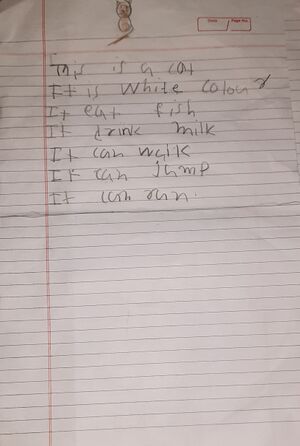 Date
Page No.
This is a cat
It is white colour
It eat fish
It drink milk
It can walk
It can jump
It can run.